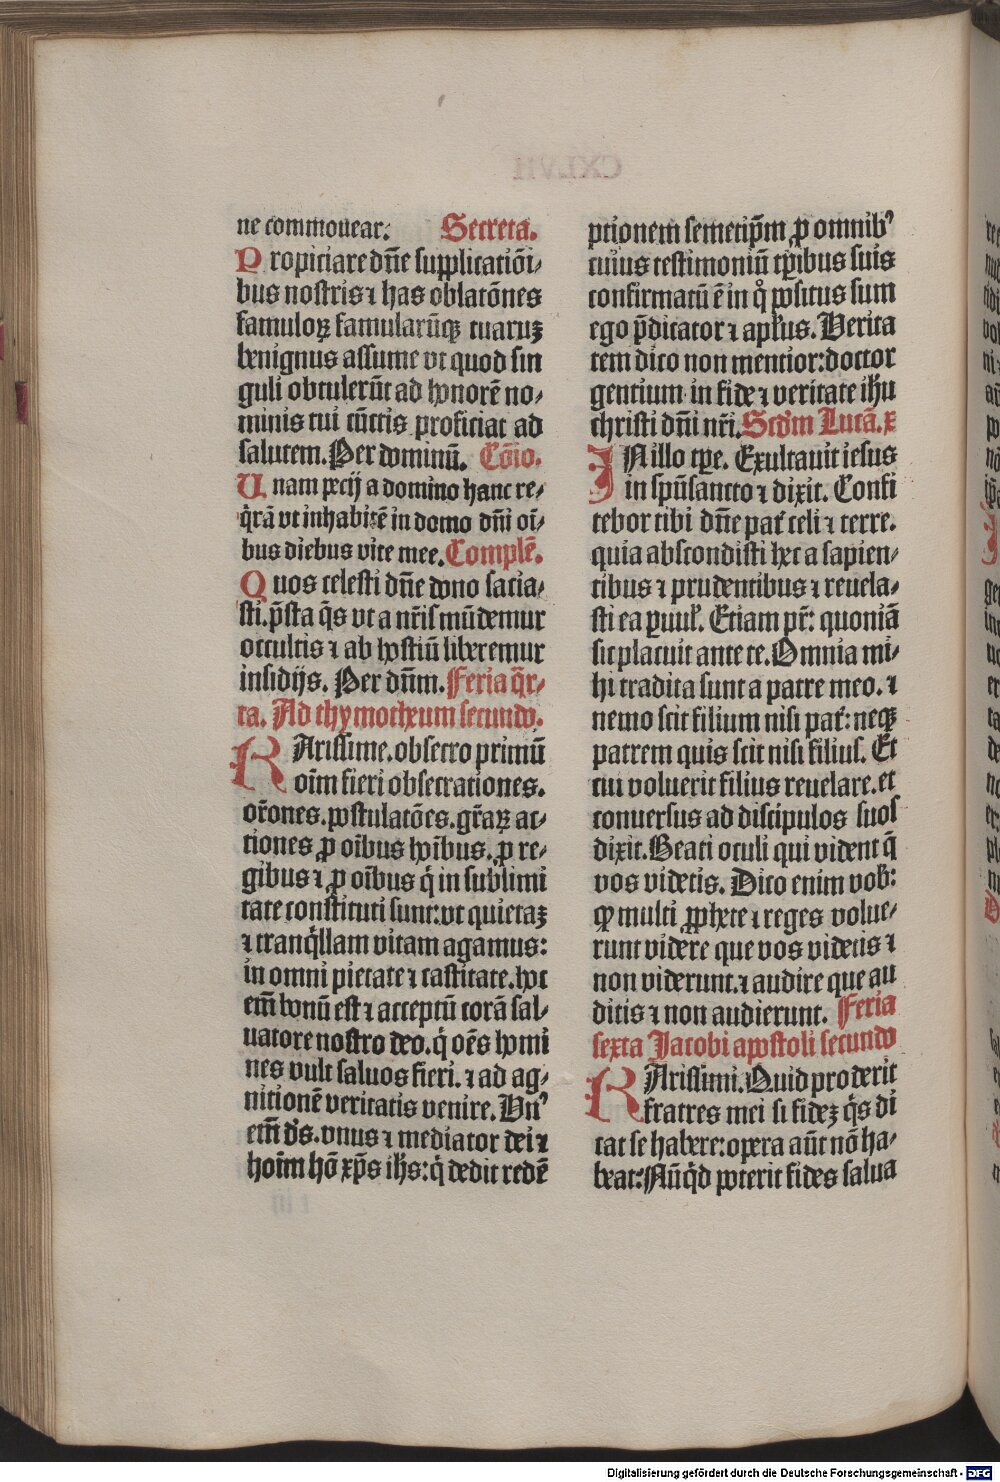 ne commouear. Secreta.
Propiciare dñe supplicatiõi⸗
bus nostris ⁊ has oblatõnes
famuloꝝ famularũqꝫ tuaruꝫ
benignus assume vt quod sin
guli obtulerũt ad honorẽ no⸗
minis tui cũctis proficiat ad
salutem. Per dominũ. Cõio.
Unam pecij a domino hanc re⸗
q̃rã vt inhabitẽ in domo dñi oĩ⸗
bus diebus vite mee. Complẽ.
Quos celesti dñe dono sacia⸗
sti. p̃sta q̃s vt a nr̃is mũdemur
occultis ⁊ ab hostiũ liberemur
insidijs. Per dñm. Feria q̃r⸗
ta. Ad thymotheum secundo.
KArissime. obsecro primũ
oĩm fieri obsecrationes.
or̃ones. postulatões. gr̃aꝝ ac⸗
tiones ꝓ oĩbus hoĩbus. ꝓ re⸗
gibus ⁊ ꝓ oĩbus q̇ in sublimi
tate constituti sunt: vt quietaꝫ
⁊ tranq̇llam vitam agamus:
in omni pietate ⁊ castitate. hoc
em̃ bonũ est ⁊ acceptũ corã sal⸗
uatore nostro deo. q̇ oẽs homi
nes vult saluos fieri. ⁊ ad ag⸗
nitionẽ veritatis venire. Vnꝰ
em̃ dẽs. vnus ⁊ mediator dei ⁊
hoĩm hõ xp̃s ih̃s: q̇ dedit redẽ
ptionem semetip̃m ꝓ omnibꝰ
cuius testimoniũ tꝑibus suis
confirmatũ ẽ in qͦ positus sum
ego p̃dicator ⁊ apl̃us. Verita
tem dico non mentior: doctor
gentium in fide ⁊ veritate ihu
christi dñi nr̃i. Scd̃m Lucã. x
IN illo tꝑe. Exultauit iesus
in spũsancto ⁊ dixit. Confi
tebor tibi dñe pat̃ celi ⁊ terre.
quia abscondisti hec a sapien⸗
tibus ⁊ prudentibus ⁊ reuela⸗
sti ea ꝑuul̃. Etiam pr̃: quoniã
sic placuit ante te. Omnia mi⸗
hi tradita sunt a patre meo. ⁊
nemo scit filium nisi pat̃: neqꝫ
patrem quis scit nisi filius. Et
cui voluerit filius reuelare. et
conuersus ad discipulos suos
dixit. Beati oculi qui vident q̃
vos videtis. Dico enim vob̃:
ꝙ multi ꝓphete ⁊ reges volue⸗
runt videre que vos videtis ⁊
non viderunt. ⁊ audire que au
ditis ⁊ non audierunt. Feria
sexta Jacobi apostoli secundo
KArissimi. Quid proderit
fratres mei si fideꝫ q̇s di
cat se habere: opera aũt nõ ha⸗
beat: Nũq̇d poterit fides salua
Digitalisierung gefördert durch die Deutsche Forschungsgemeinschaft - DFG